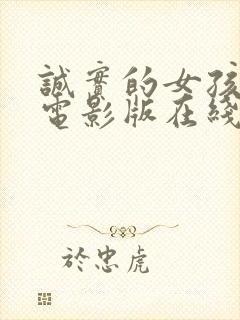 誠實的女孩
電影版在綫
於忠虎